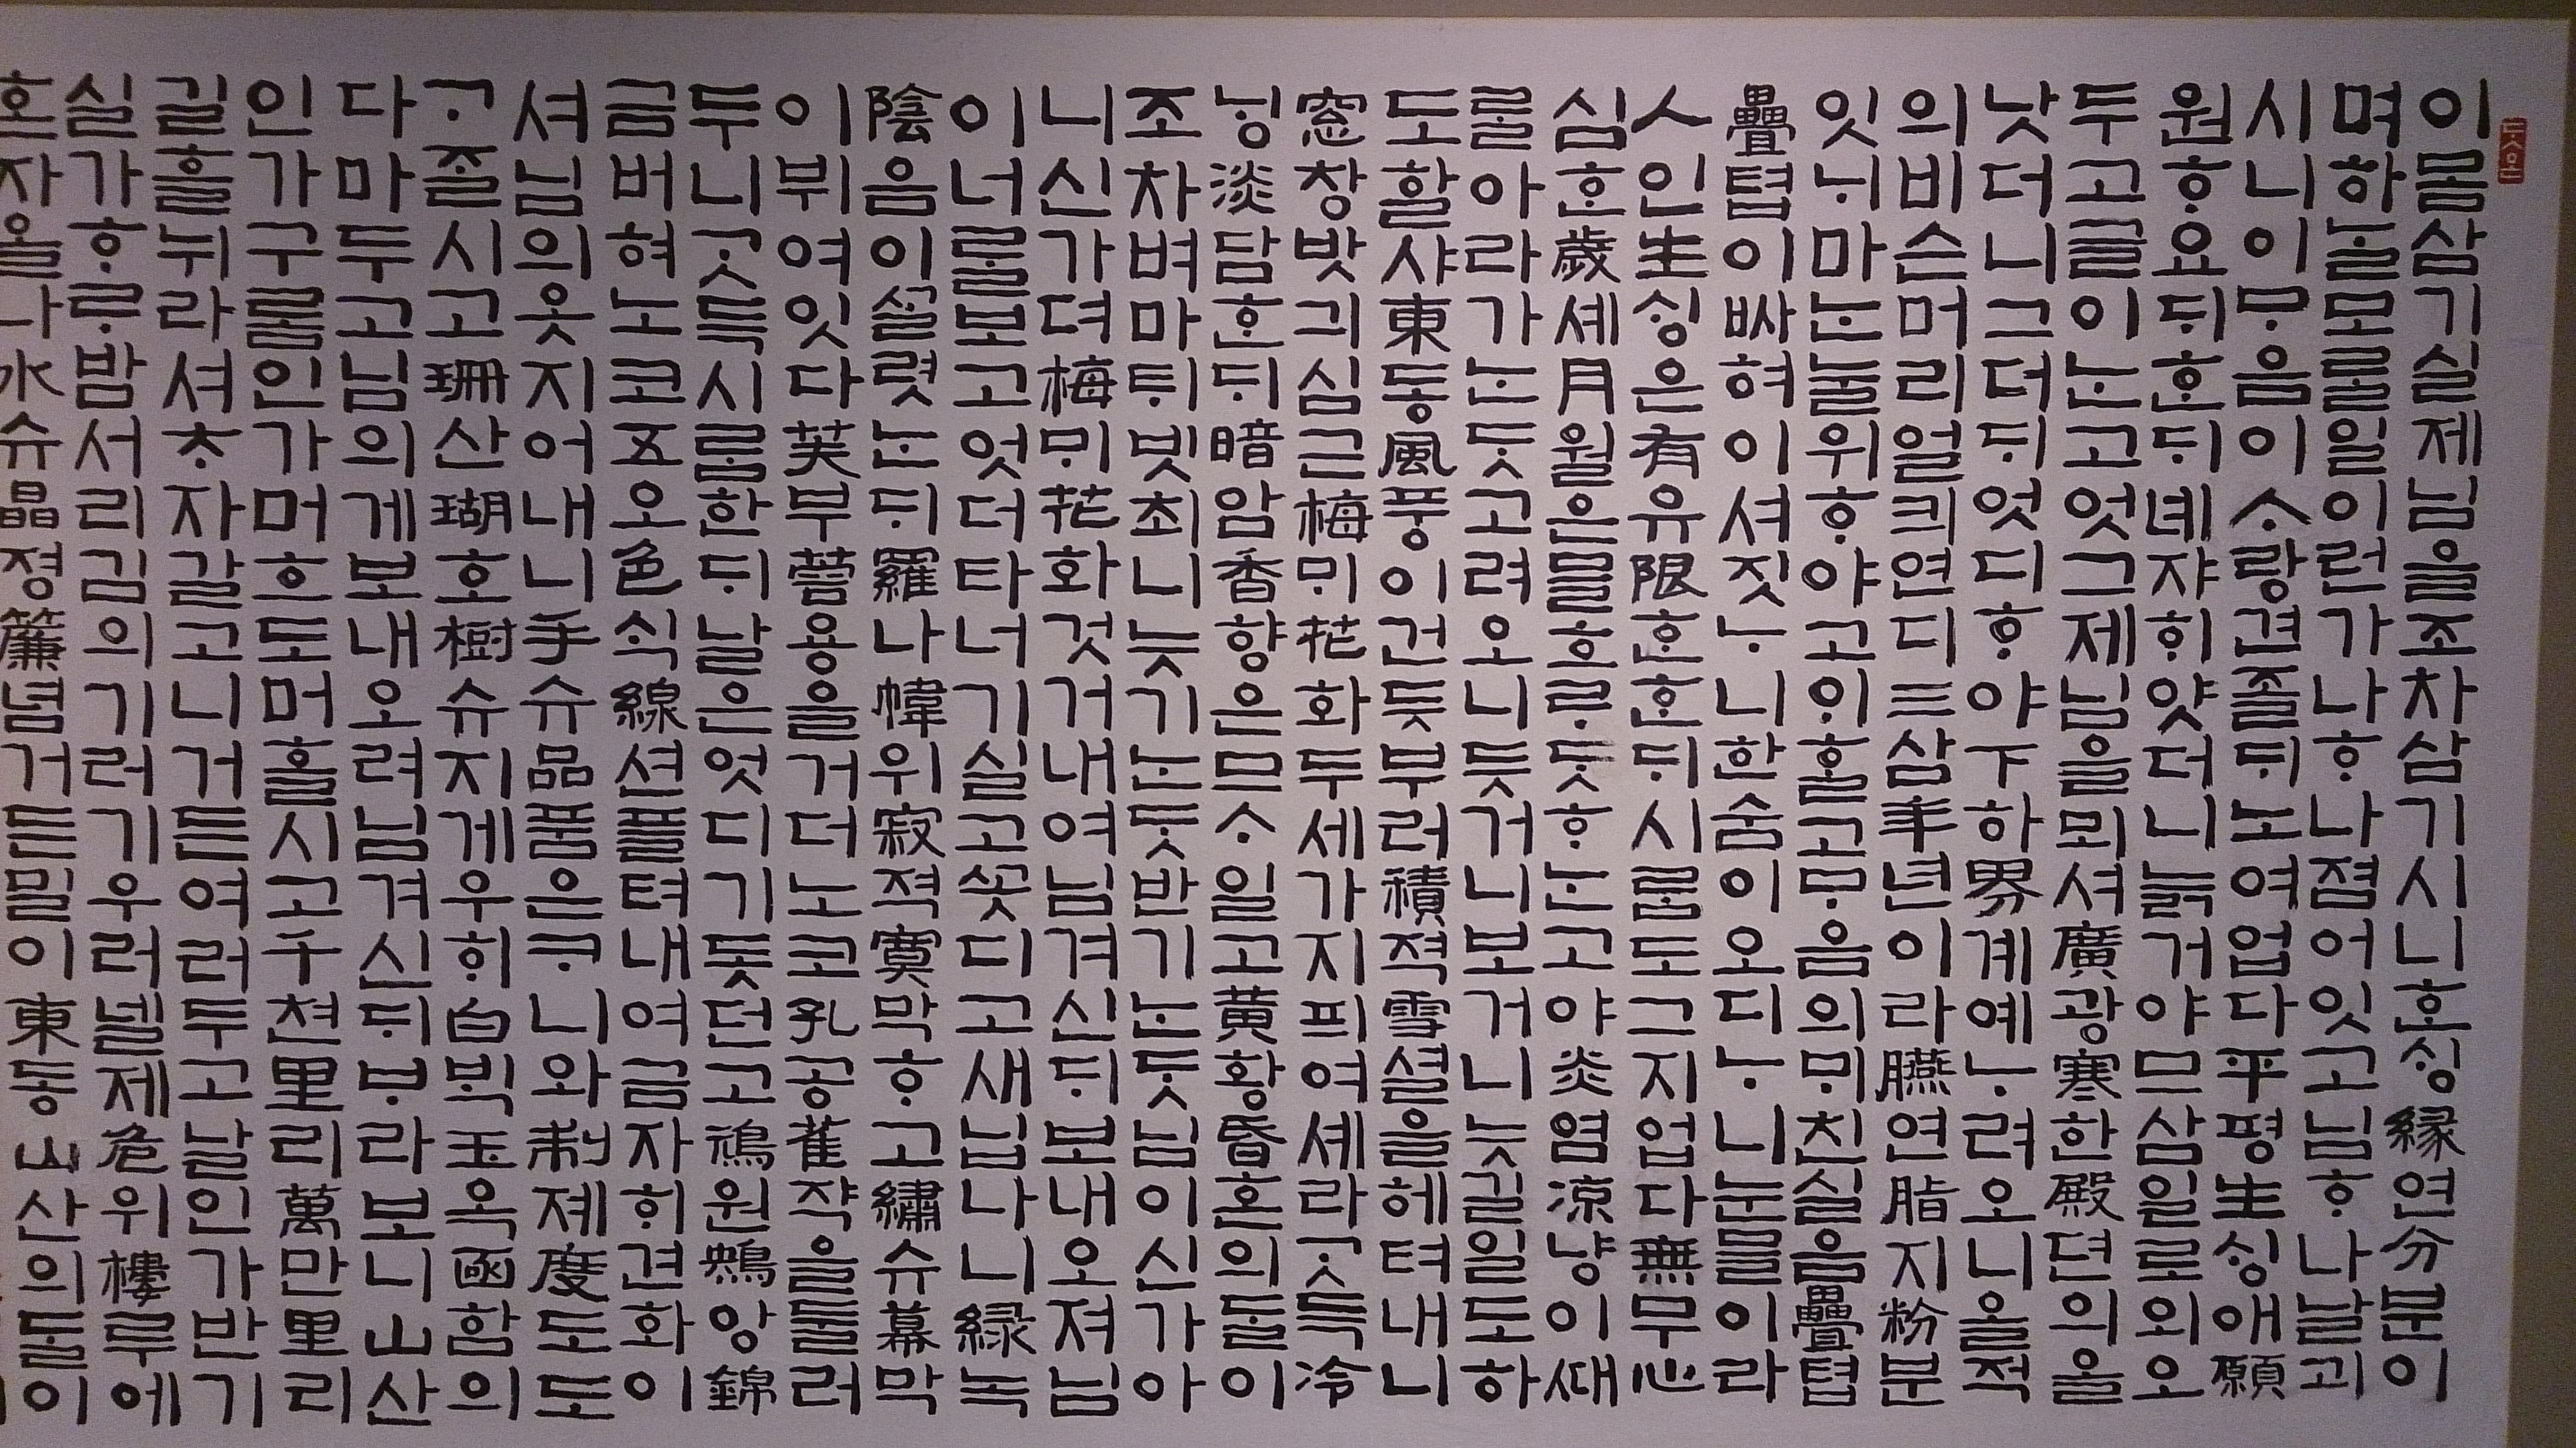 이몸삼기실제님을조차삼기시니ᄒᆞᆫᄉᆡᆼ緣연分분이
며하ᄂᆞᆯ모ᄅᆞᆯ일이런가나ᄒᆞ나졈어잇고님ᄒᆞ나날괴
시니이ᄆᆞ음이ᄉᆞ랑견졸ᄃᆡ노여업다平평生ᄉᆡᆼ애願
원ᄒᆞ요ᄃᆡᄒᆞᆫᄃᆡ녜쟈ᄒᆡ얏더니늙거야므삼일로외오
두고글이ᄂᆞᆫ고엇그제님을뫼셔廣광寒한殿뎐의올
낫더니그더ᄃᆡ엇디ᄒᆞ야下하界계예ᄂᆞ려오니올적
의비슨머리얼킈연디三삼年년이라臙연脂지粉분
잇ᄂᆡ마ᄂᆞᆫ눌위ᄒᆞ야고ᄋᆡᄒᆞᆯ고ᄆᆞ음의ᄆᆡ친실음疊텹
疊텹이ᄡᅡ혀이셔짓ᄂᆞ니한숨이오디ᄂᆞ니눈믈이라
人인生ᄉᆡᆼ은有유限ᄒᆞᆫᄒᆞᆫᄃᆡ시ᄅᆞᆷ도그지업다無무心
심ᄒᆞᆫ歲셰月월은믈흐ᄅᆞᄃᆞᆺᄒᆞᄂᆞᆫ고야炎염凉냥이ᄯᅢ
ᄅᆞᆯ아라가ᄂᆞᆫᄃᆞᆺ고려오니듯거니보거니늣길일도하
도할샤東동風풍이건듯부러積적雪셜을헤텨내니
窓창밧긔심근梅ᄆᆡ花화두세가지픠여셰라ᄀᆞᆺ득冷
ᄂᆡᆼ淡담ᄒᆞᆫᄃᆡ暗암香향은므ᄉᆞ일고黃황昏혼의ᄃᆞᆯ이
조차벼마ᄐᆡ빗최니늣기ᄂᆞᆫᄃᆞᆺ반기ᄂᆞᆫᄃᆞᆺ님이신가아
니신가뎌梅ᄆᆡ花화것거내여님겨신ᄃᆡ보내오져님
이너ᄅᆞᆯ보고엇더타너기실고ᄭᅩᆺ디고새닙나니綠녹
陰음이ᄭᆞᆯ렷ᄂᆞᆫᄃᆡ羅나幃위寂적寞막ᄒᆞ고繡슈幕막
이뷔여잇다芙부蓉용을거더노코孔공雀쟉을둘러
두니ᄀᆞᆺ득시ᄅᆞᆷ한ᄃᆡ날은엇디기돗던고鴛원鴦앙錦
금버혀노코五오色ᄉᆡᆨ線션플텨내여금자ᄒᆡ견화이
셔님의옷지어내니手슈品품은ᄏᆞ니와制졔度도도
ᄀᆞ졸시고珊산瑚호樹슈지게우ᄒᆡ白ᄇᆡᆨ玉옥函함의
다마두고님의게보내오려님겨신ᄃᆡᄇᆞ라보니山산
인가구롬인가머흐도머흘시고千쳔里리萬만里리
길흘뉘라셔ᄎᆞ자갈고니거든여러두고날인가반기
실가ᄒᆞᄅᆞ밤서리김의기러기우러녤제危위樓루에
혼자올나水슈晶졍簾념거든말이東동山산의ᄃᆞᆯ이